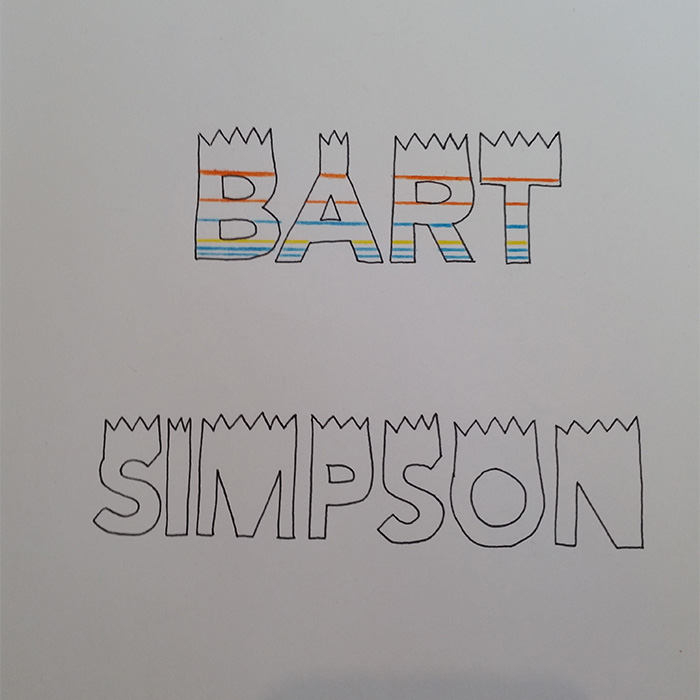 BART
SIMPSON